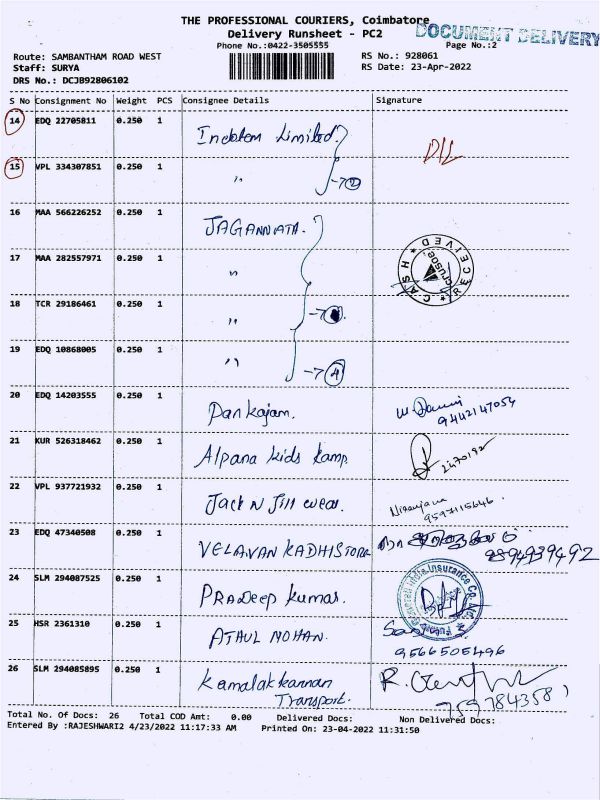 THE PROFESSIONAL COURIERS, Coimbatore
Delivery Runsheet - PC2
DOCUMENT DELIVERY
Phone No.:0422-3505555
Page No.:2
Route: SAMBANTHAM ROAD WEST
RS No.: 928061
Staff: SURYA
RS Date: 23-Apr-2022
DRS No.: DCJB92806102
S No Consignment No Weight PCS Consignee Details Signature
14 EDQ 22705811 0.250 1 Limited.
15 VPL 334307851 0.250 1 " → 2
16 MAA 566226252 0.250 1 JAGANNATA.
17 MAA 282557971 0.250 1 "
CASH RECEIVED
18 TCR 29186461 0.250 1 " →
19 EDQ 10868005 0.250 1 " → 4
20 EDQ 14203555 0.250 1 Pankajam. 9442147054
21 KUR 526318462 0.250 1 Alpana kids kamp
22 VPL 937721932 0.250 1 Jack N Jill wear. Niranjana
9597115646.
23 EDQ 47340508 0.250 1 VELAVAN KADHISTORE 9894939492
24 SLM 294087525 0.250 1 PRADeep kumar.
Future Generali India Insurance Co.
25 HSR 2361310 0.250 1 ATHUL MOHAN.
9566505496
26 SLM 294085895 0.250 1 Kamalakkannan
Transport.
Total No. Of Docs: 26 Total COD Amt: 0.00 Delivered Docs: Non Delivered Docs:
Entered By :RAJESHWARI2 4/23/2022 11:17:33 AM Printed On: 23-04-2022 11:31:50